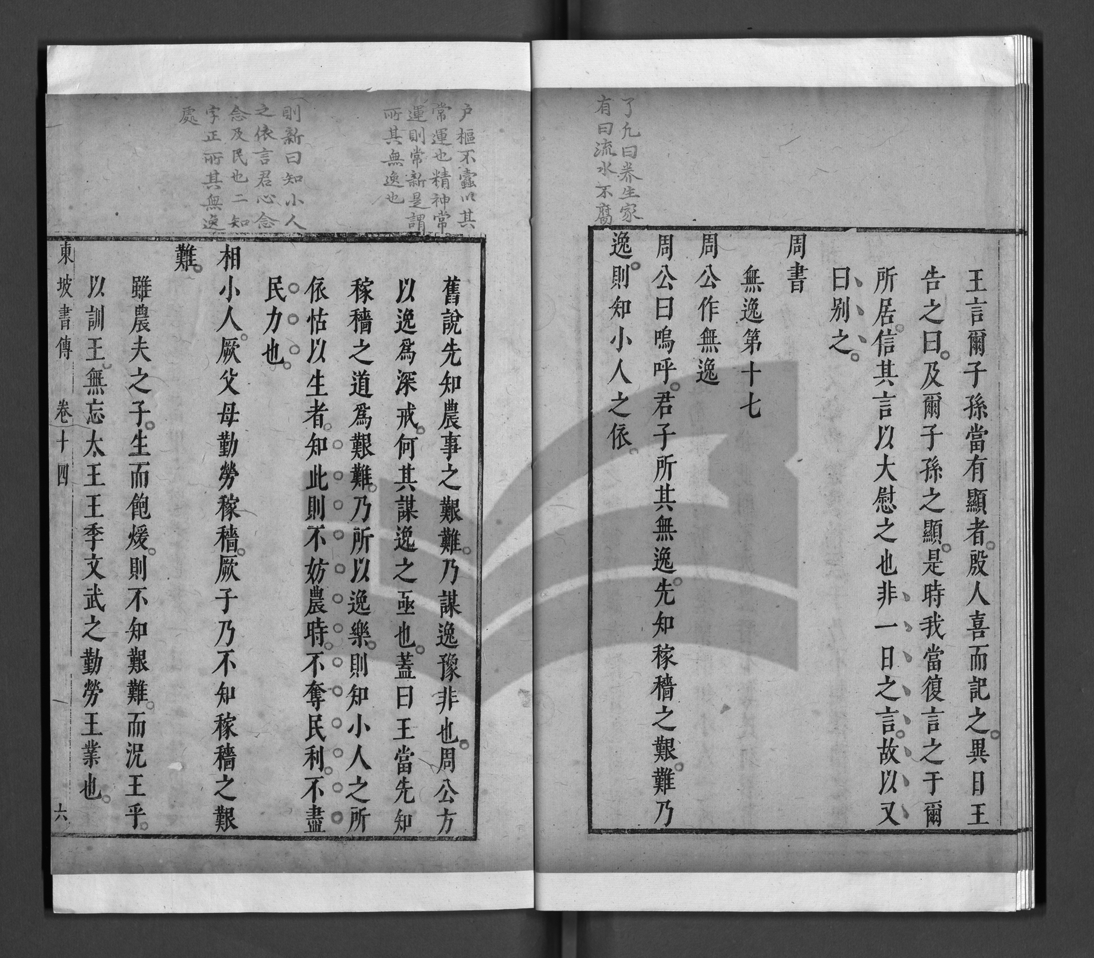 了凡曰養生家
有曰流水不腐
王言爾子孫當有顯者殷人喜而記之異日王
告之曰及爾子孫之顯是時我當復言之于爾
所居信其言以大慰之也非一日之言故以又
曰别之
周書
無逸第十七
周公作無逸
周公曰嗚呼君子所其無逸先知稼穡之艱難乃
逸則知小人之依
戶樞不蠧以其
常運也精神常
運則常新是謂
所其無逸也
則新曰知小人
之依言君心念
念及民也二知
字正所其無逸
處
舊說先知農事之艱難乃謀逸豫非也周公方
以逸爲深戒何其謀逸之亟也蓋曰王當先知
稼穡之道爲艱難乃所以逸樂則知小人之所
依怙以生者知此則不妨農時不奪民利不盡
民力也
相小人厥父母勤勞稼穡厥子乃不知稼穡之艱
難
雖農夫之子生而飽煖則不知艱難而況王乎
以訓王無忘太王王季文武之勤勞王業也
東坡書傳 卷十四 六